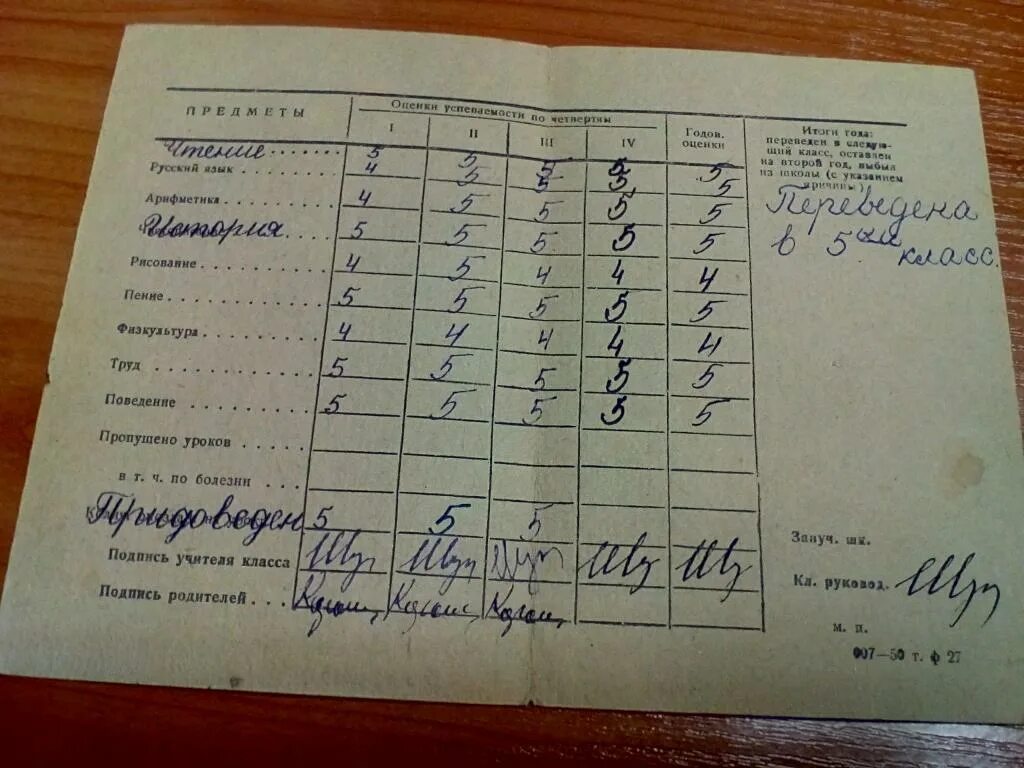 ПРЕДМЕТЫ
Оценки успеваемости по четвертям
I II III IV
Годов. оценки
Итоги года:
переведен в следую-
щий класс, оставлен
на второй год, выбыл
из школы (с указанием
причины)
Чтение 5 5 5 5 5
Русский язык 4 5 5 5 5
Арифметика 4 5 5 5 5
История 5 5 5 5 5
Рисование 4 5 4 4 4
Пение 5 5 5 5 5
Физкультура 4 4 4 4 4
Труд 5 5 5 5 5
Поведение 5 5 5 5 5
Пропущено уроков
в т. ч. по болезни
Природовeдeн 5 5 5
Подпись учителя класса
Подпись родителей
Переведена
в 5 класс.
Завуч. шк.
Кл. руковод.
м. п.
007—50 т. ф 27